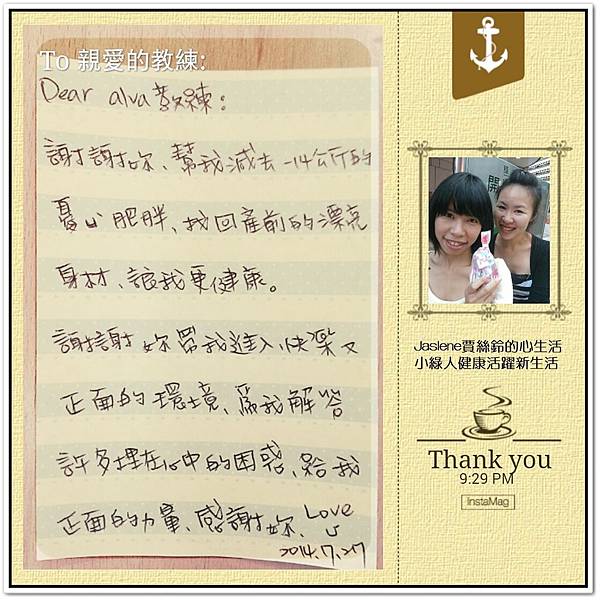 To 親愛的教練:
Dear alva 教練：
謝謝妳、幫我減去-14公斤的
憂心肥胖、找回產前的漂亮
身材、讓我更健康。
謝謝妳帶我進入快樂又
正面的環境、為我解答
許多埋在心中的困惑、給我
正面的力量、感謝妳、Love U
2014.7.27
Jaslene賈絲鈴的心生活
小綠人健康活躍新生活
Thank you
9:29 PM
InstaMag